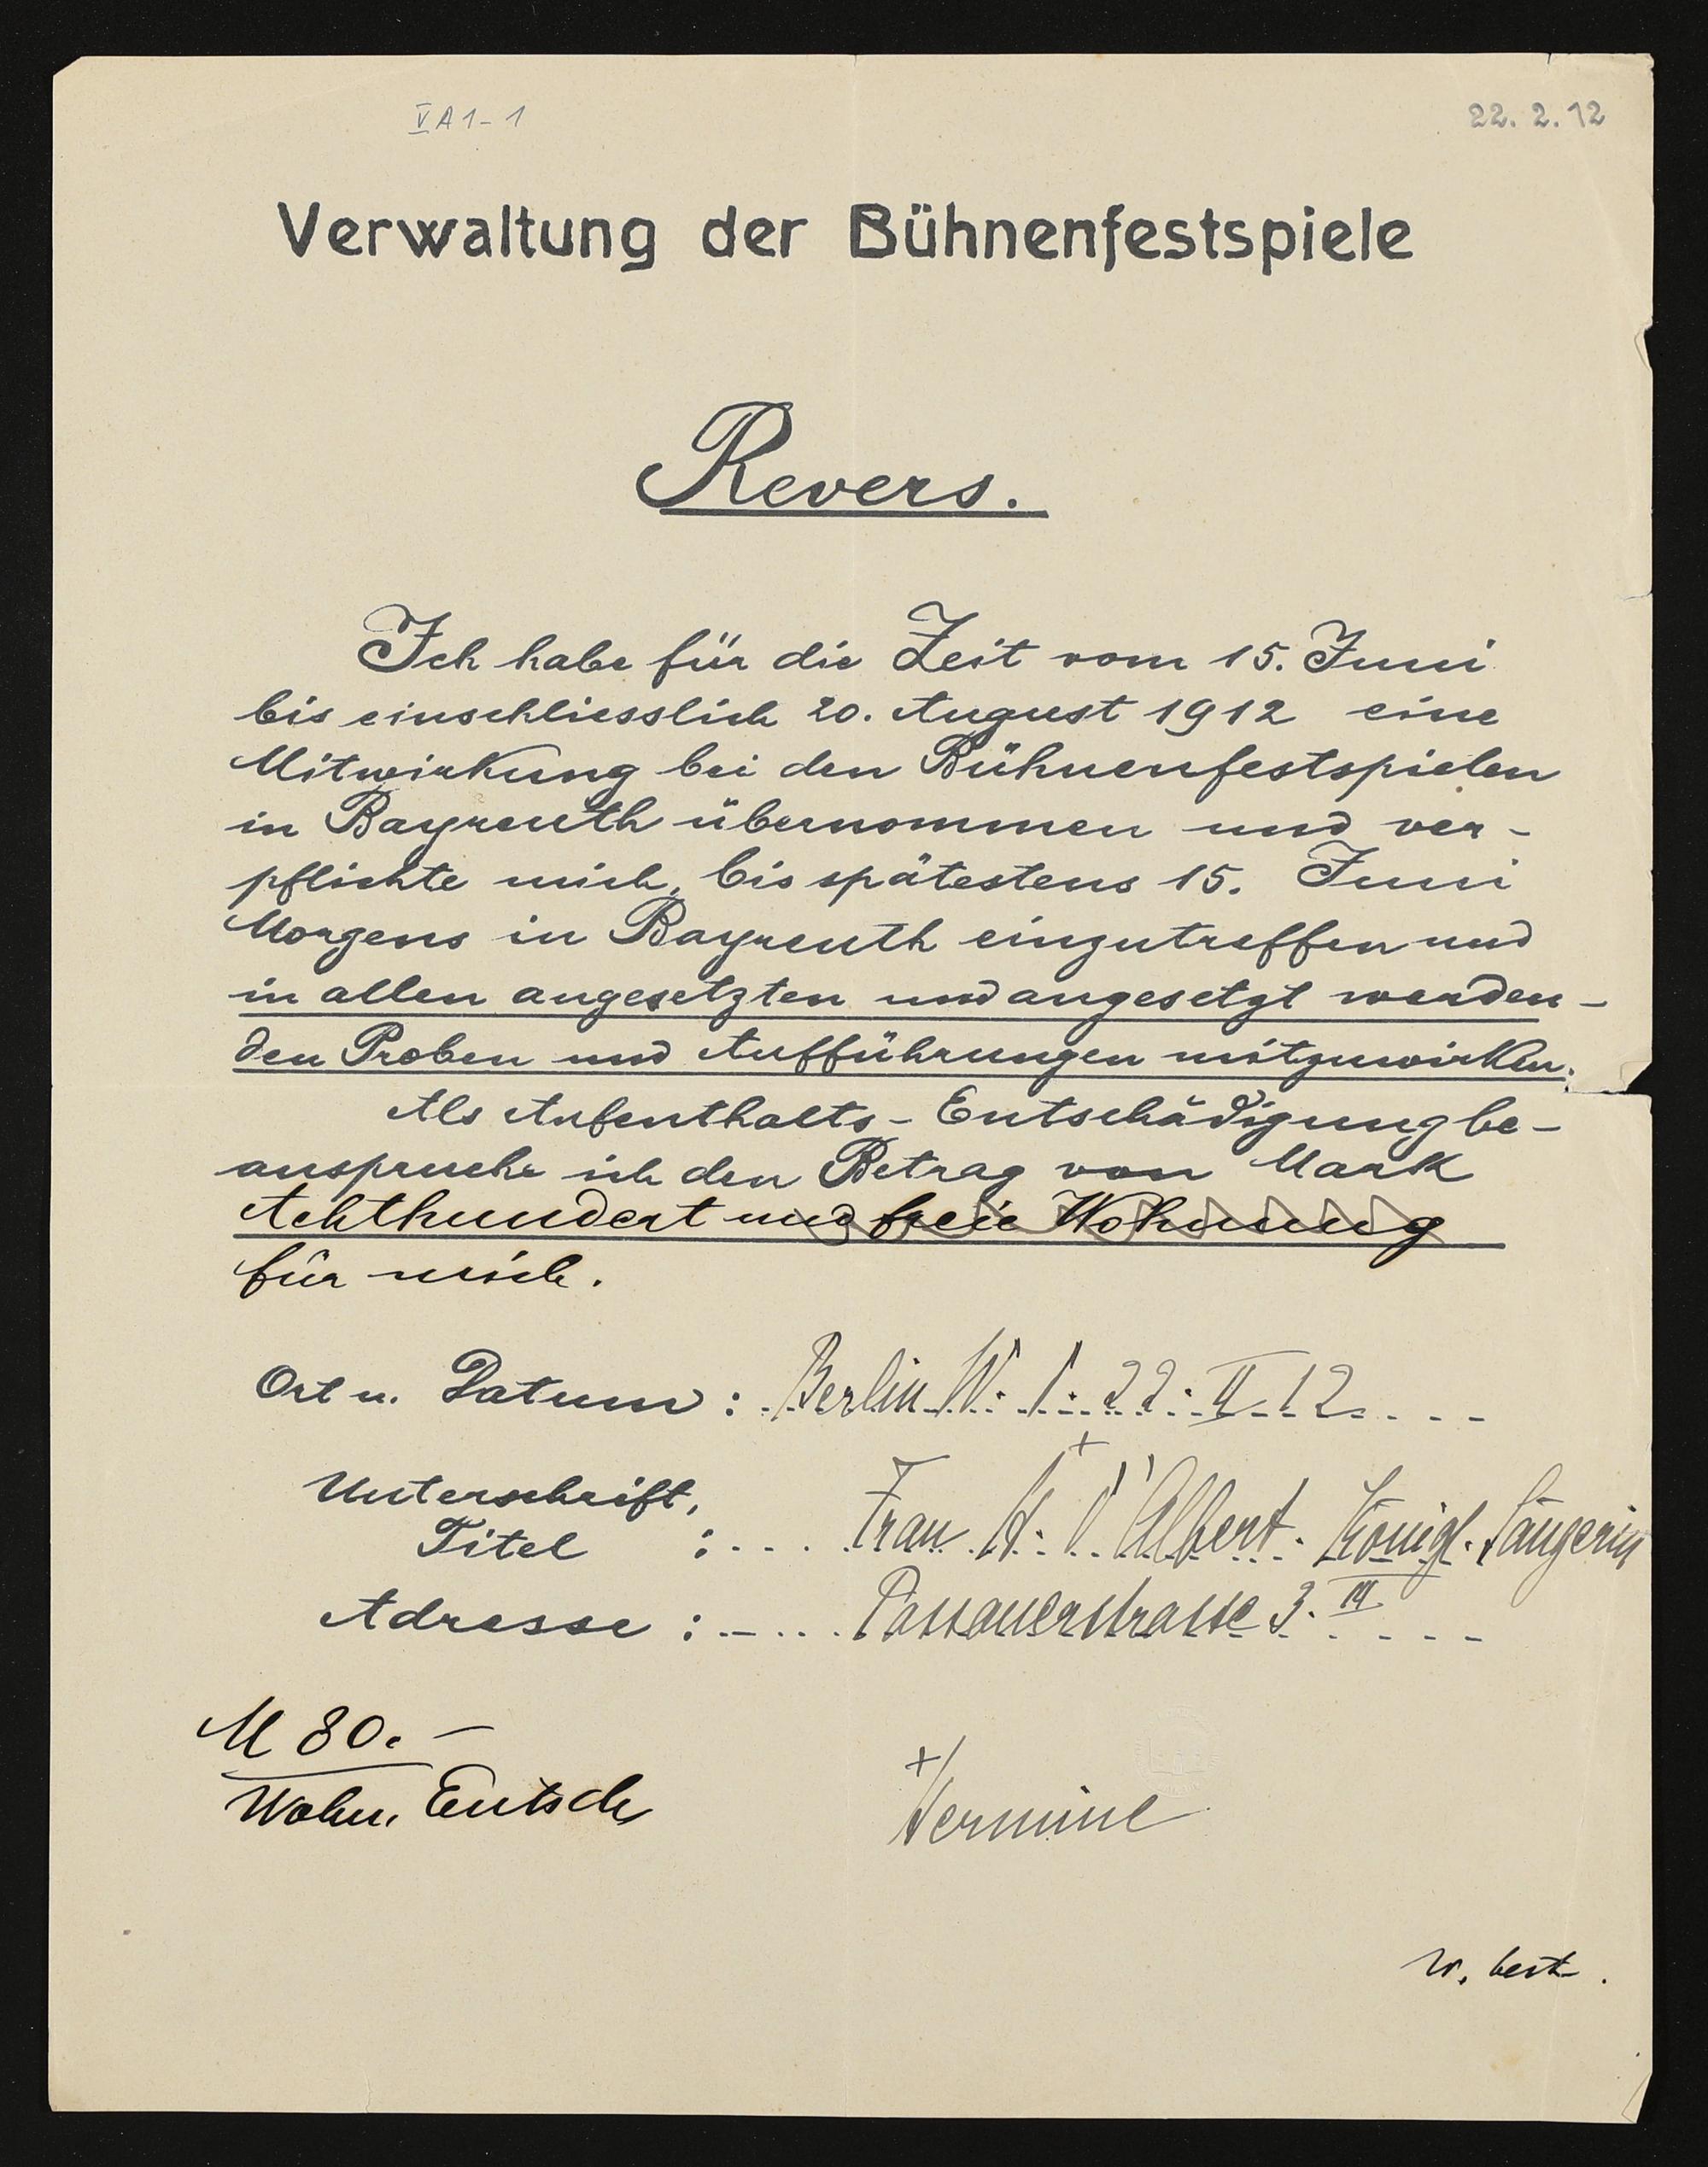 V A 1 - 1
22. 2. 12
Verwaltung der Bühnenfestspiele
Revers.
Ich habe für die Zeit vom 15. Juni
bis einschliesslich 20. August 1912 eine
Mitwirkung bei den Bühnenfestspielen
in Bayreuth übernommen und ver-
pflichte mich, bis spätestens 15. Juni
Morgens in Bayreuth einzutreffen und
in allen angesetzten und angesetzt werden-
den Proben und Aufführungen mitzuwirken.
Als Aufenthalts-Entschädigung be-
anspruche ich den Betrag von Mark
Achthundert und freie Wohnung
für mich.
Ort u. Datum: Berlin W. 22. II 12
Unterschrift,
Titel : Frau H. d'Albert. Königl. Sängerin
Adresse : Passauerstrasse 3. III
M 80.-
Wohn. Entsch
+ Hermine
w. best.